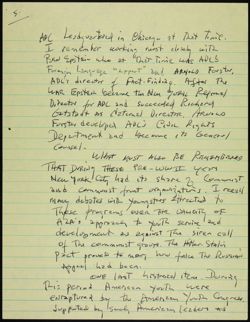 5.
ADL headquartered in Chicago at that time.
I remember working most closely with
Epstein who at that time was ADL's
Foreign Language "expert" and Arnold Forster,
ADL's director of fact-finding. After the
war Epstein became the New York Regional
Director for ADL and succeeded Richard
Gutstadt as National Director. Arnold
Forster developed ADL's Civil Rights
Department and became its General
Counsel.
What must also be remembered
that during these pre-WWII years
New York City had its share of Communist
and communist front organizations. I recall
many debates with youngsters attracted to
these programs over the validity of
AZA's approach to youth service and
development as against the siren call
of the communist groups. The Hitler-Stalin
Pact proved to many how false the Russian
appeal had been.
One last historical item. During
this period American youth were
enraptured by the American Youth Congress
supported by such American leaders as